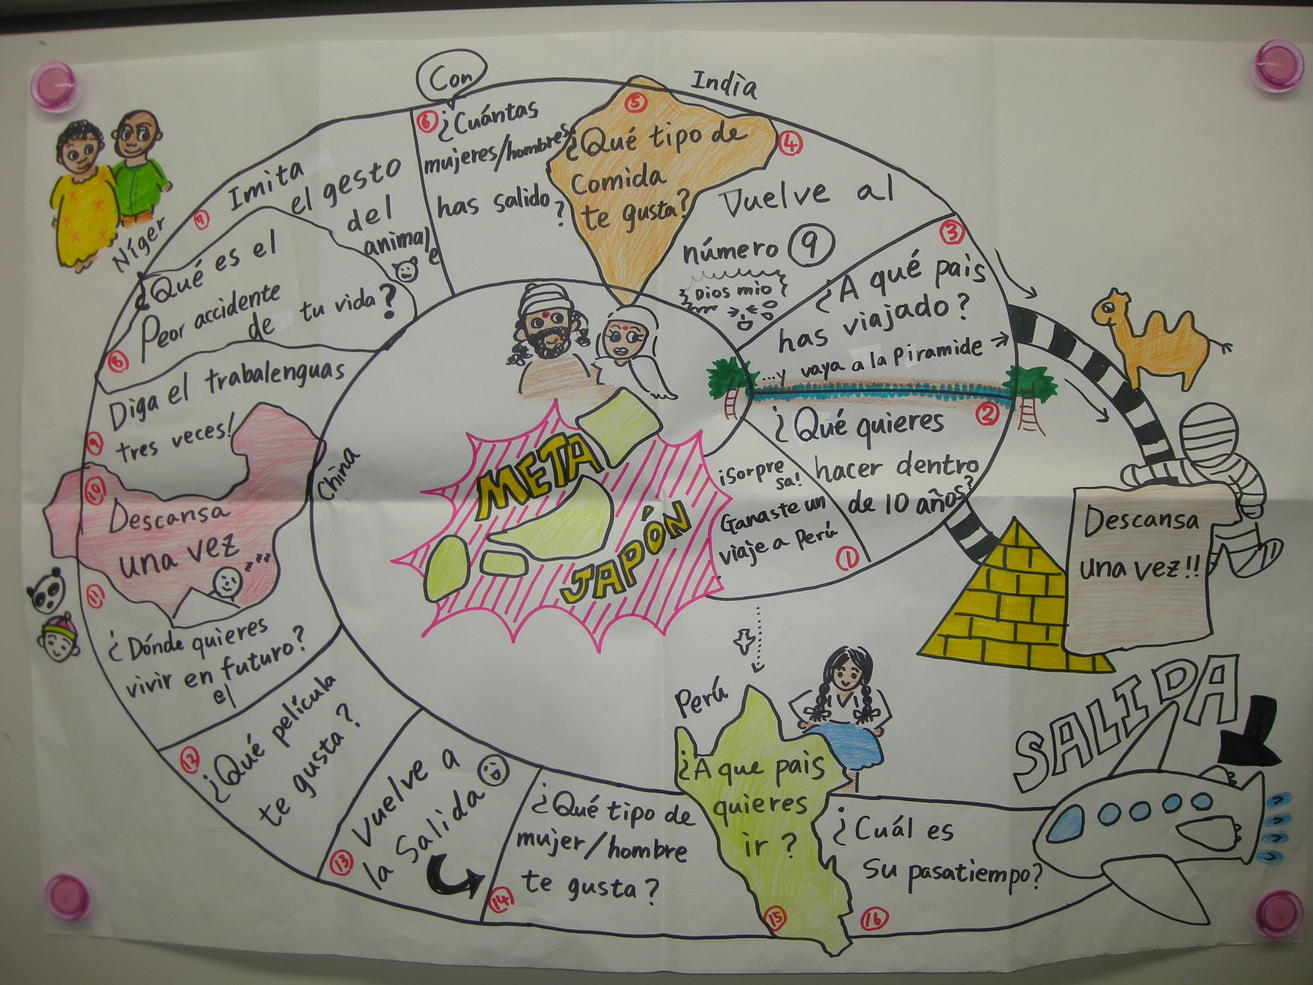 SALIDA
¿Cuál es
su pasatiempo?
16
Perú
¿A que pais
quieres
ir?
15
¿Qué tipo de
mujer/hombre
te gusta?
14
Vuelve a
la Salida
13
¿Qué película
te gusta?
12
¿Dónde quieres
vivir en futuro?
el
11
China
Descansa
una vez
zzz
10
Diga el trabalenguas
tres veces!
9
¿Qué es el
Peor accidente
de tu vida?
8
Níger
Imita
el gesto
del
animal
Con
¿Cuántas
mujeres/hombres
has salido?
6
India
¿Qué tipo de
Comida
te gusta?
5
Vuelve al
número 9
Dios mio
4
¿A qué pais
has viajado?
...y vaya a la Piramide
3
¿Qué quieres
hacer dentro
de 10 años?
2
¡Sorpre
sa!
Ganaste un
viaje a Perú
1
Descansa
una vez!!
META
JAPÓN